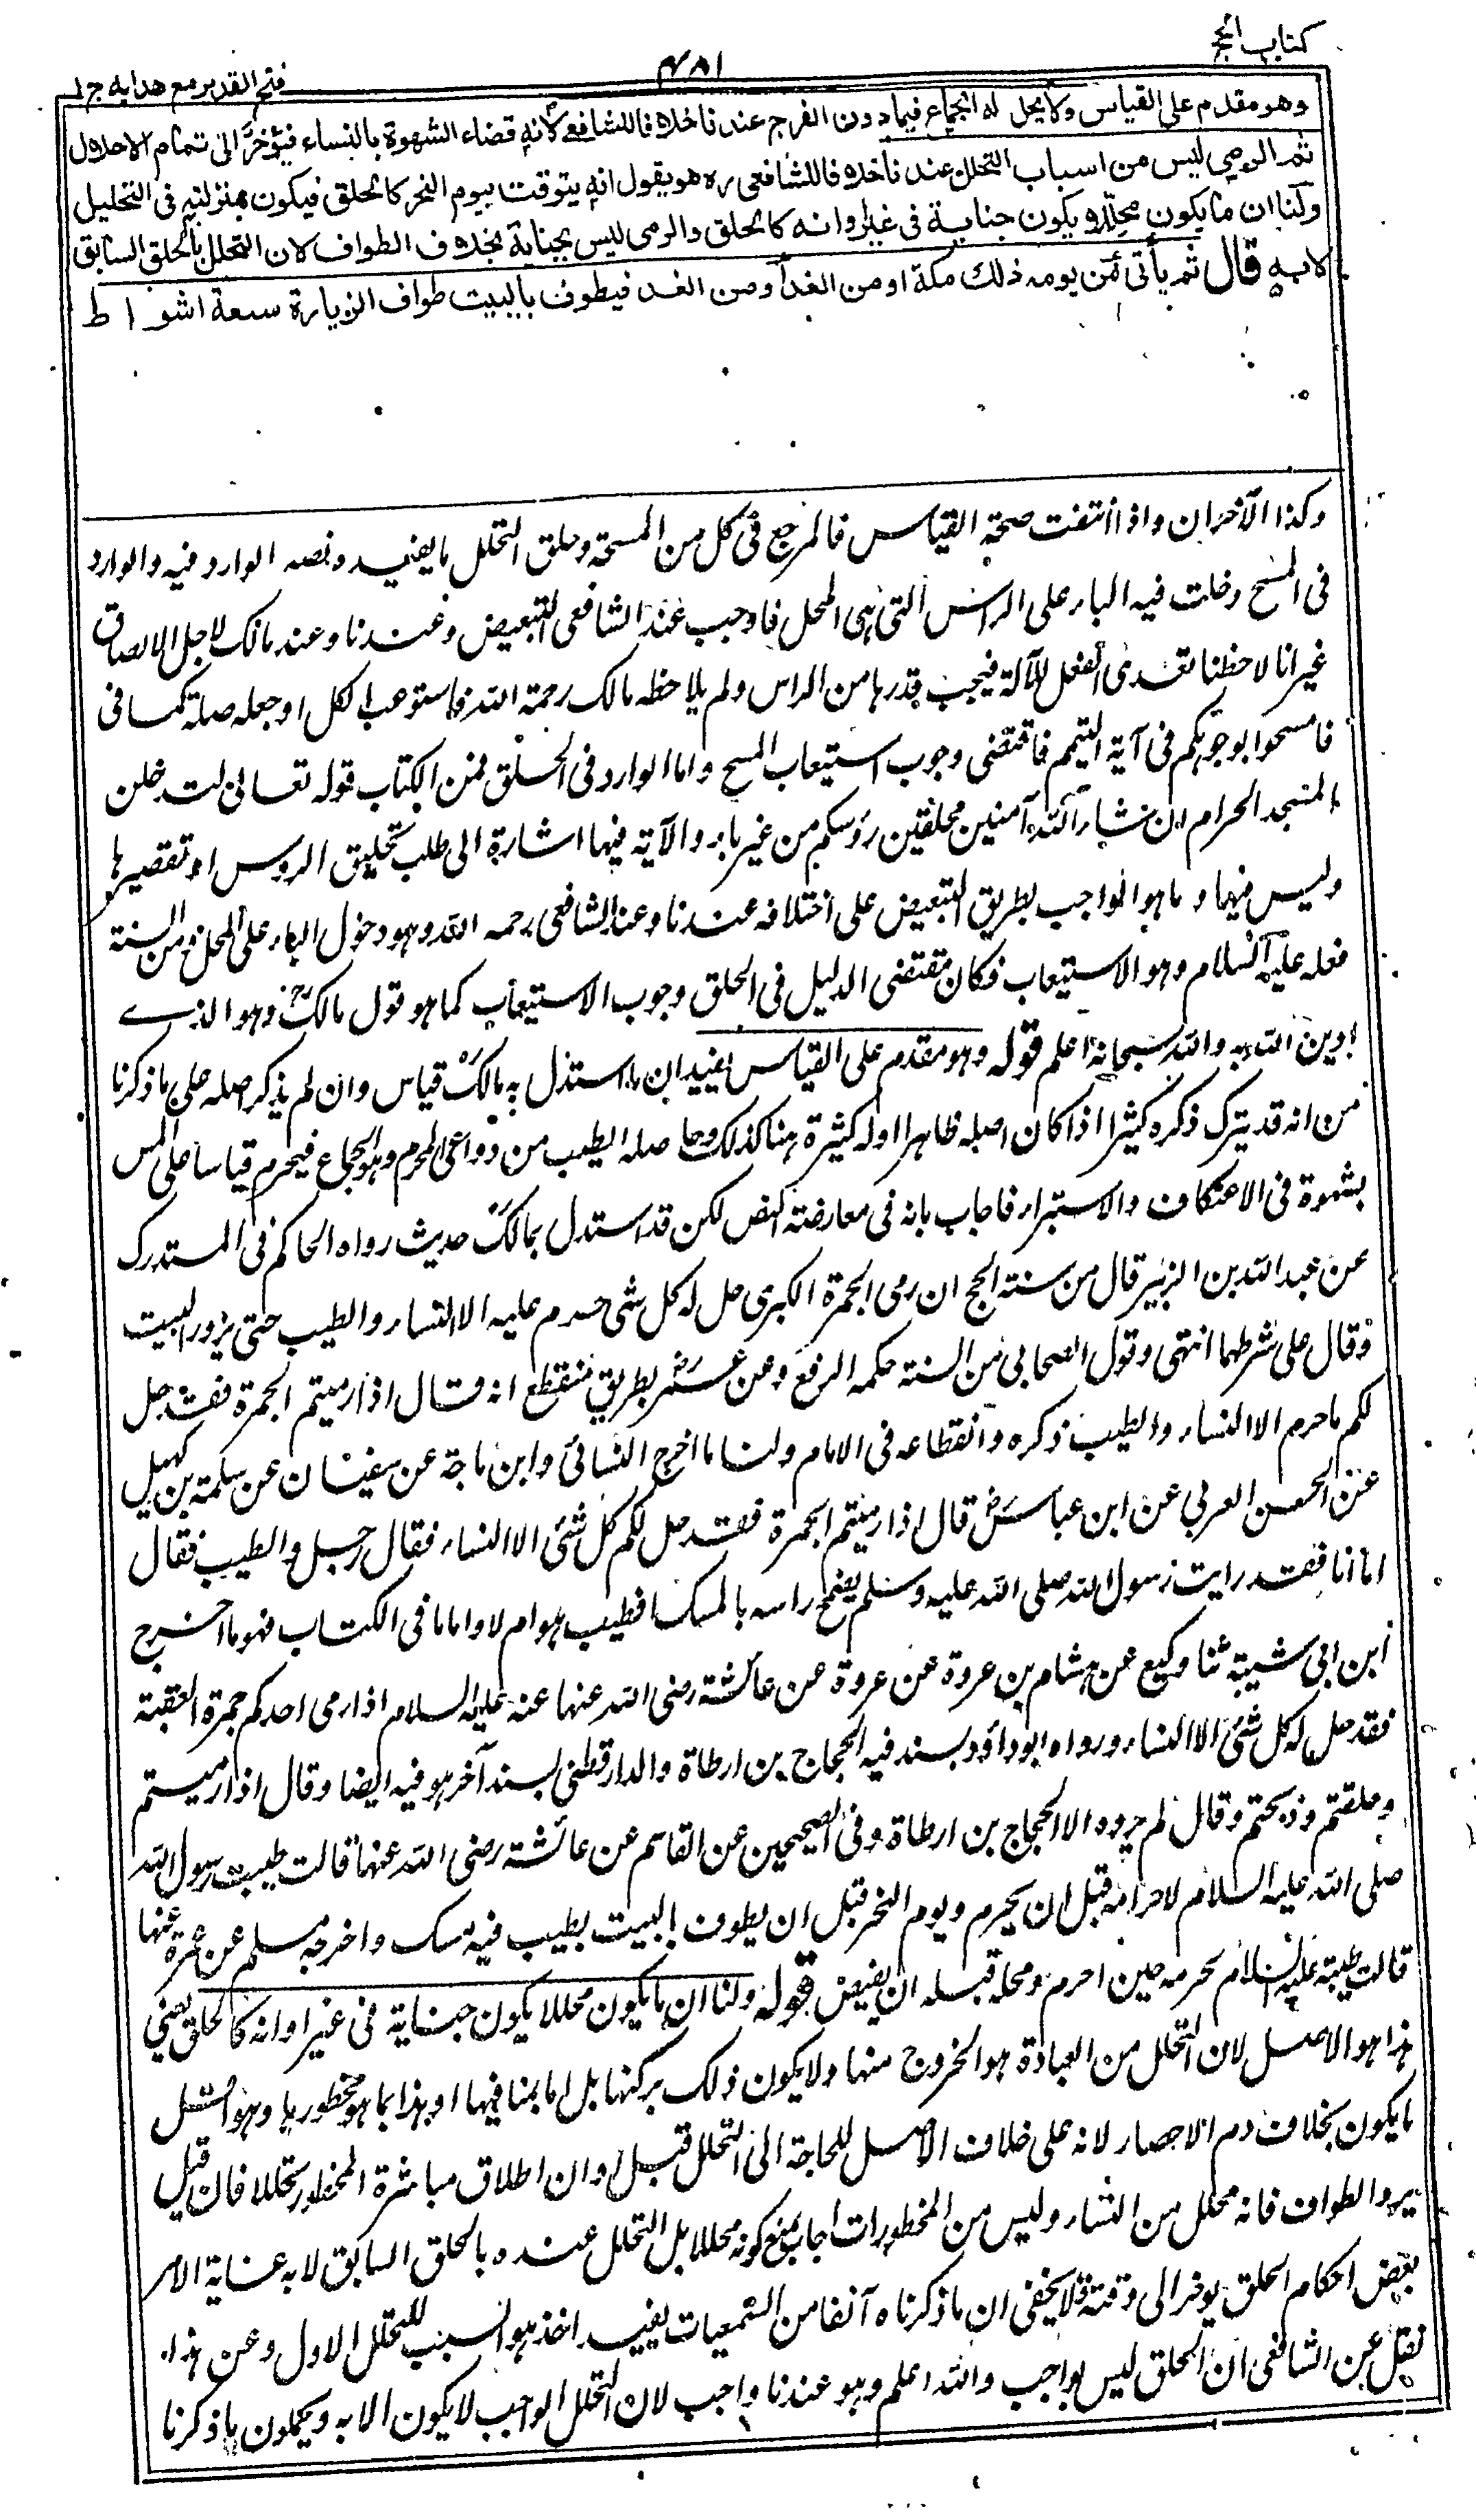 كتاب الحج
٤٨١
فتح القدير مع هدايه ج ١
وهو مقدم على القياس ولا يحل له الجماع فيما دون الفرج عندنا خلافا للشافعي لانه قضاء الشهوة بالنساء فيؤخر الى تمام الاحلال
ثم الرمي ليس من اسباب التحلل عندنا خلافا للشافعي ره هو يقول انه يتوقت بيوم النحر كالحلق فيكون بمنزلته في التحليل
ولنا ان ما يكون محللا يكون جناية في غير اوانه كالحلق والرمي ليس بجناية بخلاف الطواف لان التحلل بالحلق السابق
لا به قال ثم يأتي من يومه ذلك مكة او من الغد او من بعد الغد فيطوف بالبيت طواف الزيارة سبعة اشواط
وكذا الآخران واذا انتفت صحة القياس فالمرجع في كل من المسح وحلق التحلل ما يفيده نصه الوارد فيه والوارد
في المسح دخلت فيه الباء على الراس التي هي المحل فاوجب عند الشافعي التبعيض وعندنا وعند مالك لاجل الالصاق
غير انا لاحظنا تعدي الفعل للآلة فيجب قدرها من الراس ولم يلاحظه مالك رحمة الله فاستوعب الكل او جعله صلة كما في
فامسحوا بوجوهكم في آية التيمم فاقتضى وجوب استيعاب المسح واما الوارد في الحلق فمن الكتاب قوله تعالى لتدخلن
المسجد الحرام ان شاء الله آمنين محلقين رؤسكم من غير باء والآية فيها اشارة الى طلب تحليق الرؤس او تقصيرها
وليس فيها ما هو الواجب بطريق التبعيض على اختلافه عندنا وعند الشافعي رحمه الله وهو دخول الباء على المحل ومن السنة
فعله عليه السلام وهو الاستيعاب فكان مقتضى الدليل في الحلق وجوب الاستيعاب كما هو قول مالك وهو الذى
ادين الله به والله سبحانه اعلم قوله وهو مقدم على القياس يفيد ان ما استدل به مالك قياس وان لم يذكر اصله على ما ذكرنا
من انه قد يترك ذكره كثيرا اذا كان اصله ظاهرا اوله كثيرة هنا كذلك وحاصله الطيب من دواعي المحرم وهو الجماع فيحرم قياسا على المس
بشهوة في الاعتكاف والاستبراء فاجاب بانه في معارضة النص لكن قد استدل لمالك بحديث رواه الحاكم في المستدرك
عن عبد الله بن الزبير قال من سنة الحج ان رمى الجمرة الكبرى حل له كل شئ حرم عليه الا النساء والطيب حتى يزور البيت
وقال على شرطهما انتهى وقول الصحابي من السنة حكمه الرفع وعن عمر بطريق منقطع انه قال اذا رميتم الجمرة فقد حل
لكم ما حرم الا النساء والطيب ذكره وانقطاعه في الامام ولنا ما اخرج النسائي وابن ماجة عن سفيان عن سلمة بن كهيل
عن الحسن العرني عن ابن عباس قال اذا رميتم الجمرة فقد حل لكم كل شئ الا النساء فقال رجل والطيب فقال
اما انا فقد رايت رسول الله صلى الله عليه وسلم يضمخ راسه بالمسك افطيب هو ام لا واما ما في الكتاب فهو ما اخرج
ابن ابي شيبة ثنا وكيع عن هشام بن عروة عن عروة عن عائشة رضى الله عنها عنه عليه السلام اذا رمى احدكم جمرة العقبة
فقد حل له كل شئ الا النساء ورواه ابو داود بسند فيه الحجاج بن ارطاة والدارقطني بسند آخر هو فيه ايضا وقال اذا رميتم
وحلقتم وذبحتم وقال لم يروه الا الحجاج بن ارطاة وفي الصحيحين عن القاسم عن عائشة رضى الله عنها قالت طيبت رسول الله
صلى الله عليه السلام لاحرامه قبل ان يحرم ويوم النحر قبل ان يطوف بالبيت بطيب فيه مسك واخرجه مسلم عن عمرة عنها
قالت طيبته عليه السلام لحرمه حين احرم ومحله قبل ان يفيض قوله ولنا ان ما يكون محللا يكون جناية في غير اوانه كالحلق يعني
هذا هو الاصل لان التحلل من العبادة هو الخروج منها ولا يكون ذلك بركنها بل اما بمنافيها او بما هو محظورها وهو اقل
ما يكون بخلاف دم الاحصار لانه على خلاف الاصل للحاجة الى التحلل قبل اوان اطلاق مباشرة المحظور تحللا فان قيل
يرد الطواف فانه محلل من النساء وليس من المحظورات اجاب بمنع كونه محللا بل التحلل عنده بالحلق السابق لا به غاية الامر
بعض احكام الحلق يؤخر الى وقته فلا يخفى ان ما ذكرناه آنفا من السمعيات يفيد انه هو السبب للتحلل الاول وعن هذا
نقل عن الشافعي ان الحلق ليس بواجب والله اعلم وهو عندنا واجب لان التحلل الواجب لا يكون الا به ويحملون ما ذكرنا